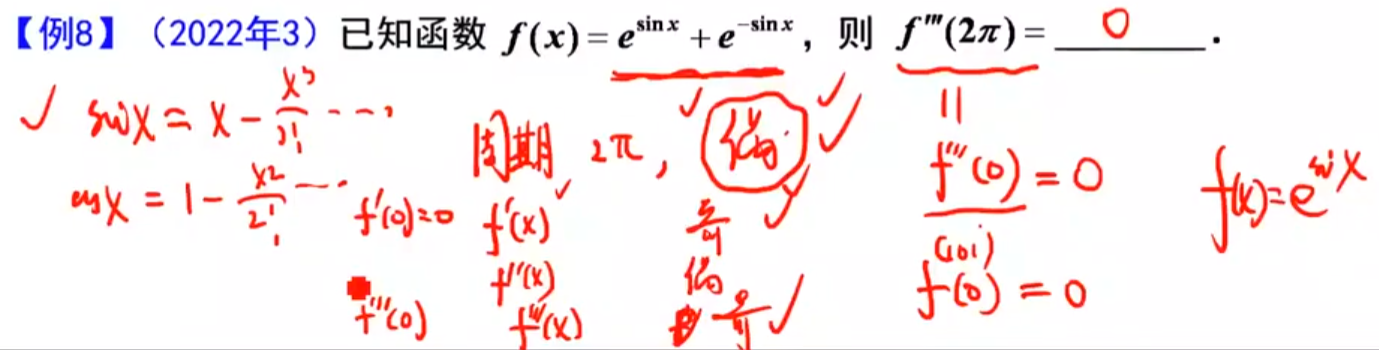 【例8】（2022年3）已知函数 f(x) = e^{sin x} + e^{-sin x}，则 f'''(2π) = 0 .
✓ sinx = x - x³/3! ...
cosx = 1 - x²/2! ...
周期 2π, 偶
f'(0)=0 f'(x) 奇
f''(x) 偶
f'''(0) f'''(x) 奇 ✓
||
f'''(0) = 0
f^{(101)}(0) = 0
f(x) = e^{sinx}